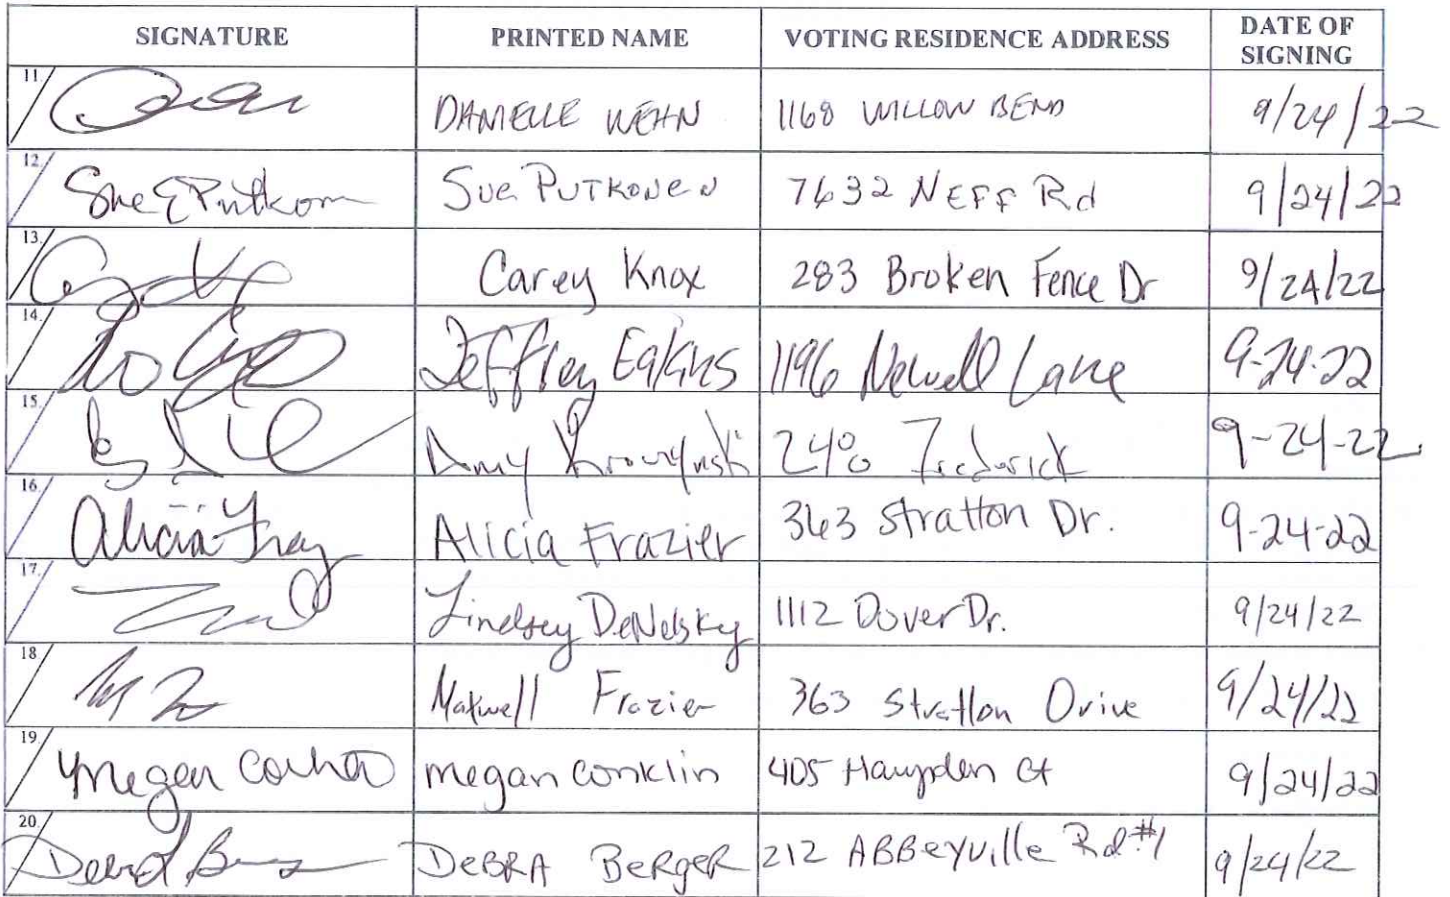 SIGNATURE PRINTED NAME VOTING RESIDENCE ADDRESS DATE OF SIGNING
11. DANIELLE WEHN 1168 WILLOW BEND 9/24/22
12. Sue E Putkonen Sue PUTKONEN 7632 NEFF Rd 9/24/22
13. Carey Knox 283 Broken Fence Dr 9/24/22
14. Jeffrey Eakins 1196 Newell Lane 9-24-22
15. Amy 240 Frederick 9-24-22
16. Alicia Fraz Alicia Frazier 363 Stratton Dr. 9-24-22
17. Lindsey DeNelsky 1112 Dover Dr. 9/24/22
18. Maxwell Frazier 363 Stratton Drive 9/24/22
19. Megan megan conklin 405 Hampden Ct 9/24/22
20. DeBRA BeRgeR 212 ABBeyville Rd #1 9/24/22